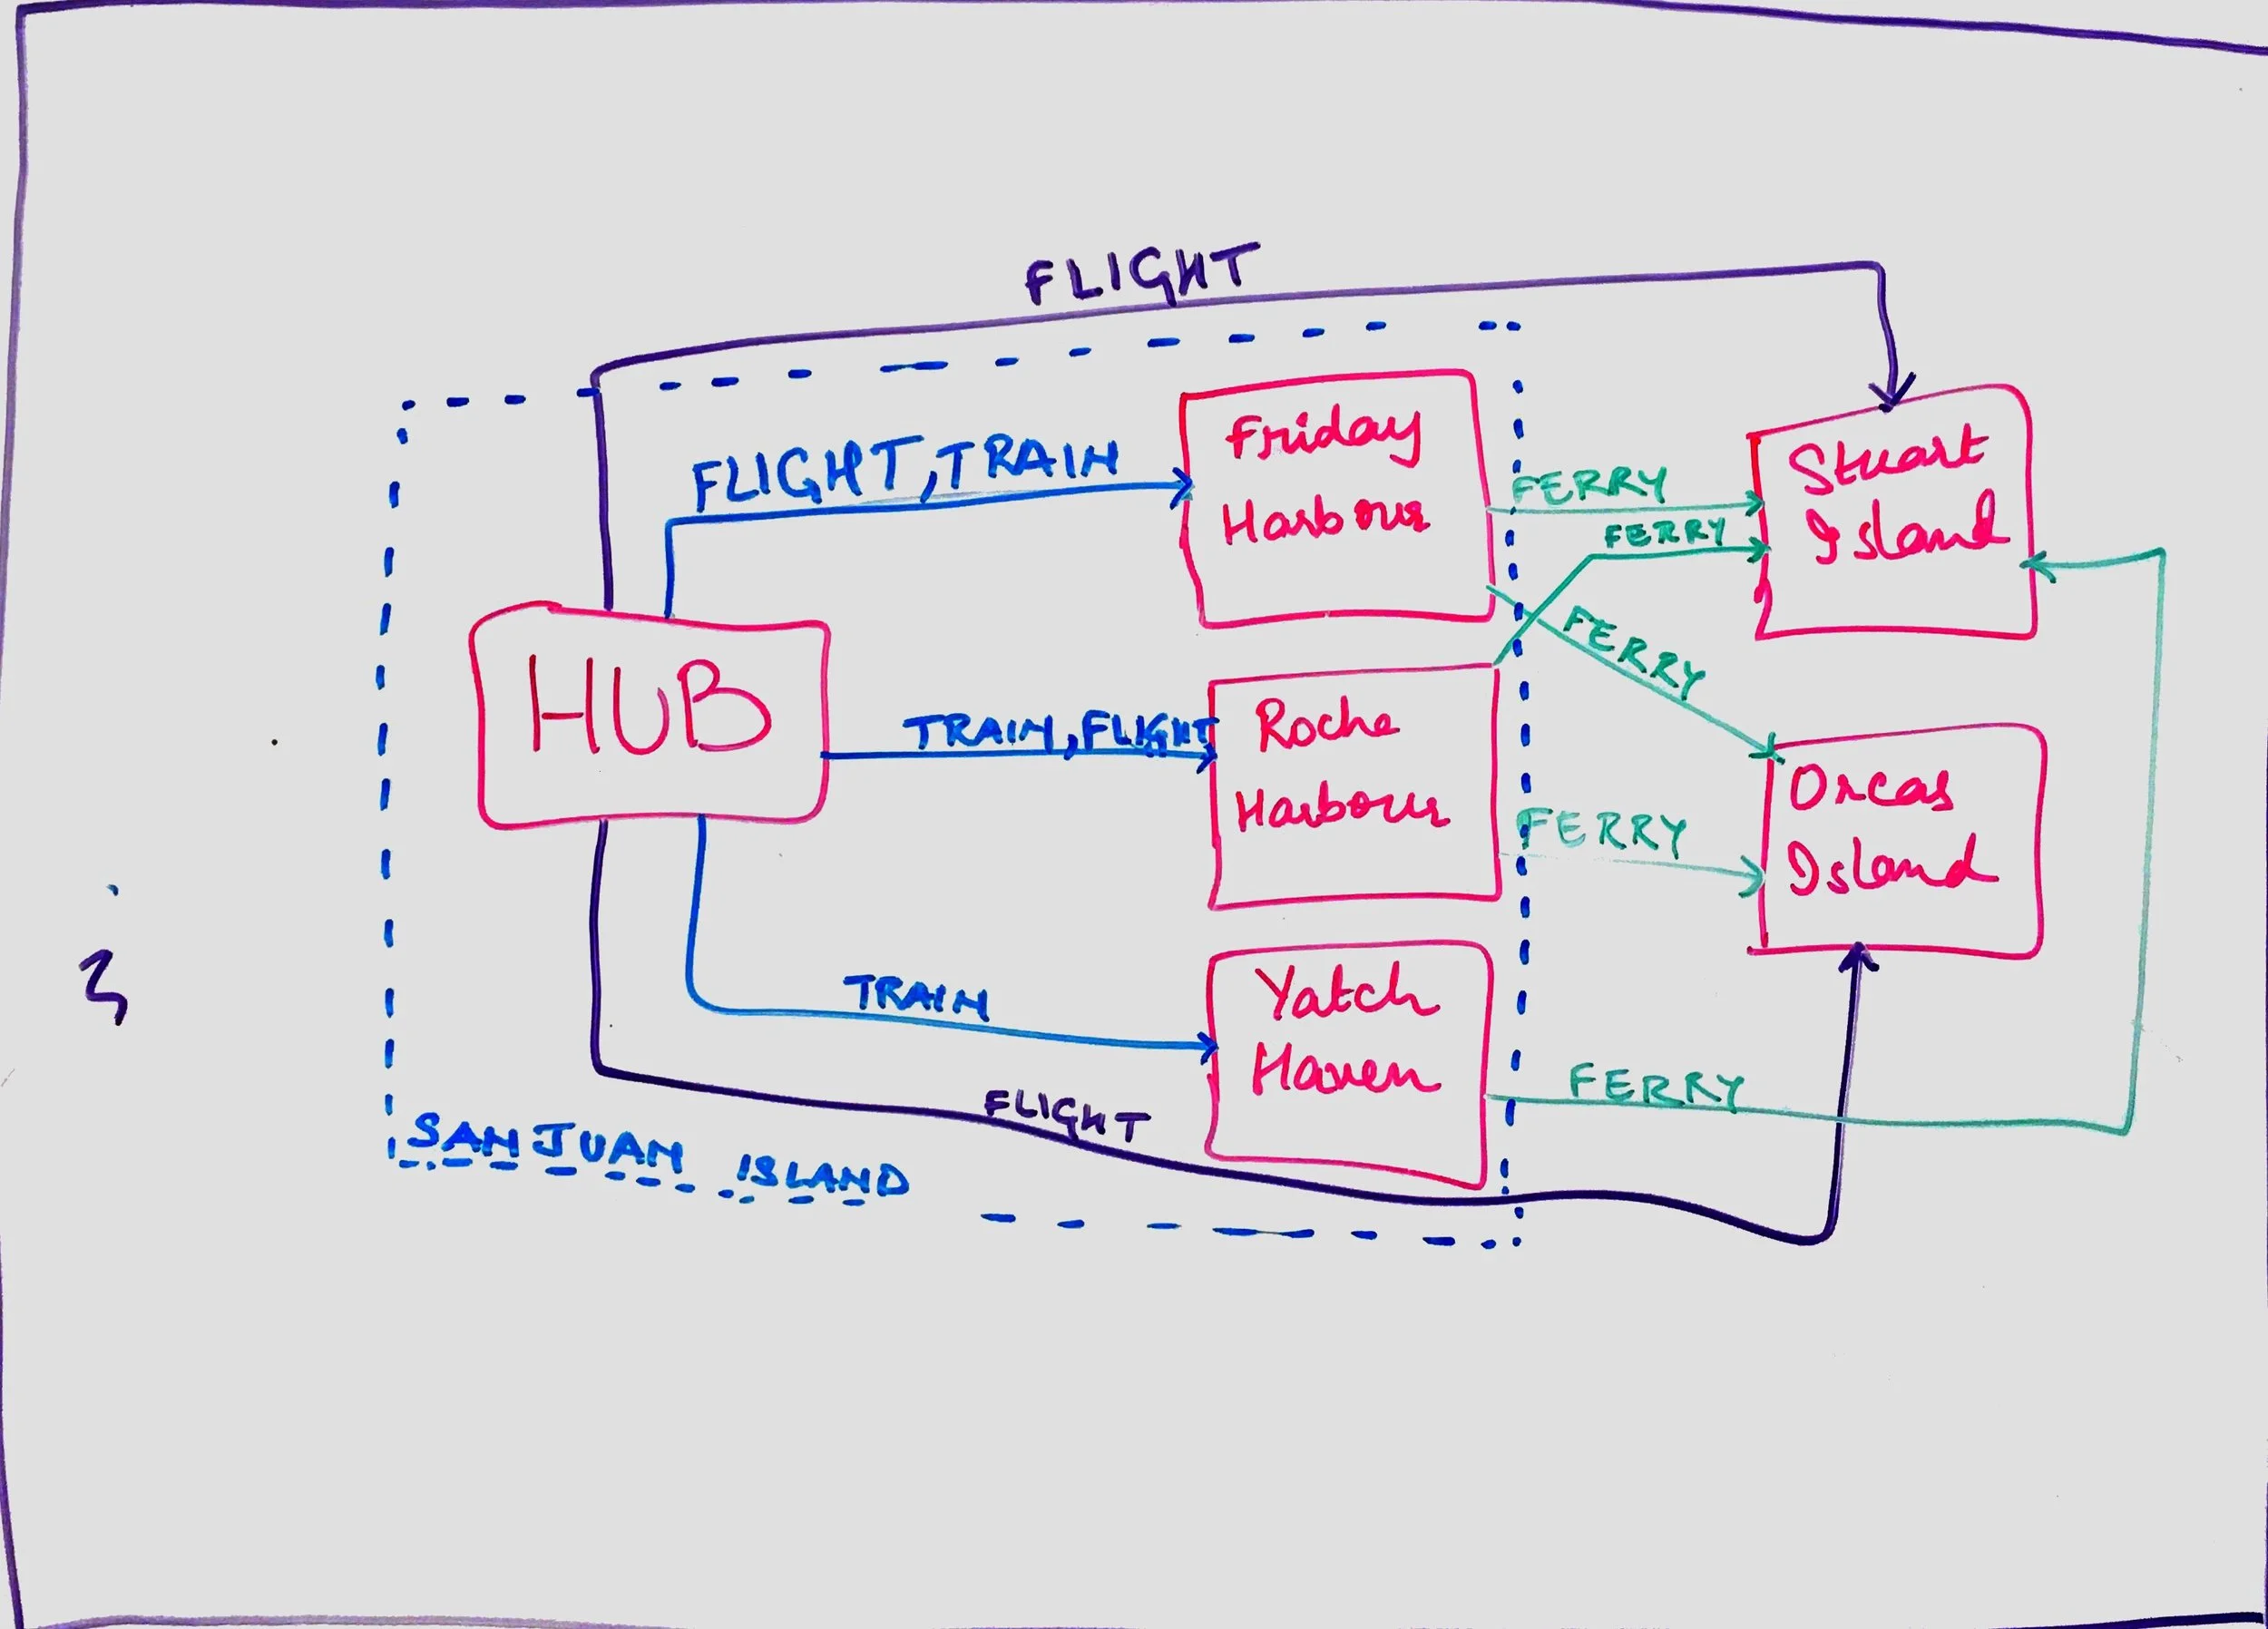 FLIGHT
FLIGHT, TRAIN
Friday
Harbour
FERRY
Stuart
Island
FERRY
FERRY
HUB
TRAIN, FLIGHT
Roche
Harbour
FERRY
Orcas
Island
TRAIN
Yatch
Haven
FERRY
FLIGHT
SAN JUAN ISLAND